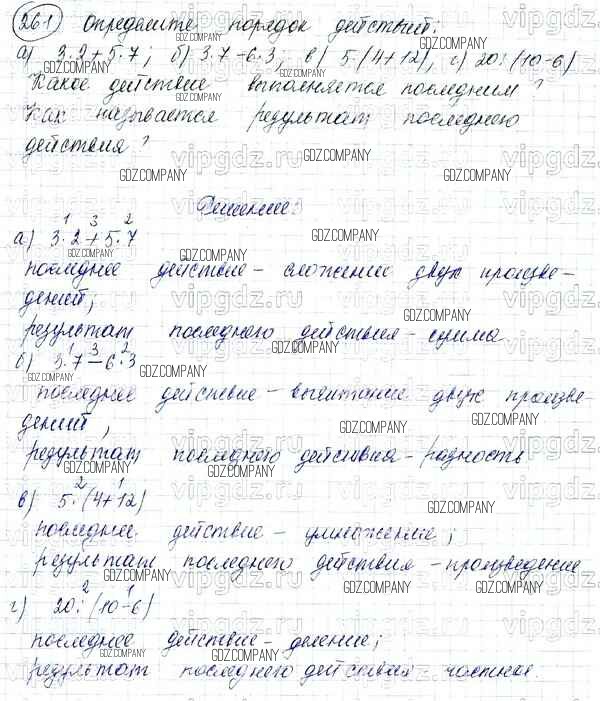 261 Определите порядок действий:
а) 3·2+5·7; б) 3·7−6·3; в) 5(4+12); г) 20:(10−6)
Какое действие выполняется последним?
Как называется результат последнего
действия?
Решение:
1 3 2
а) 3·2+5·7
последнее действие – сложение двух произве-
дений;
результат последнего действия – сумма
1 3 2
б) 3·7−6·3
последнее действие – вычитание двух произве-
дений,
результат последнего действия – разность
2 1
в) 5·(4+12)
последнее действие – умножение;
результат последнего действия – произведение
2 1
г) 20:(10−6)
последнее действие – деление;
результат последнего действия частное.
vipgdz.ru
GDZ.COMPANY